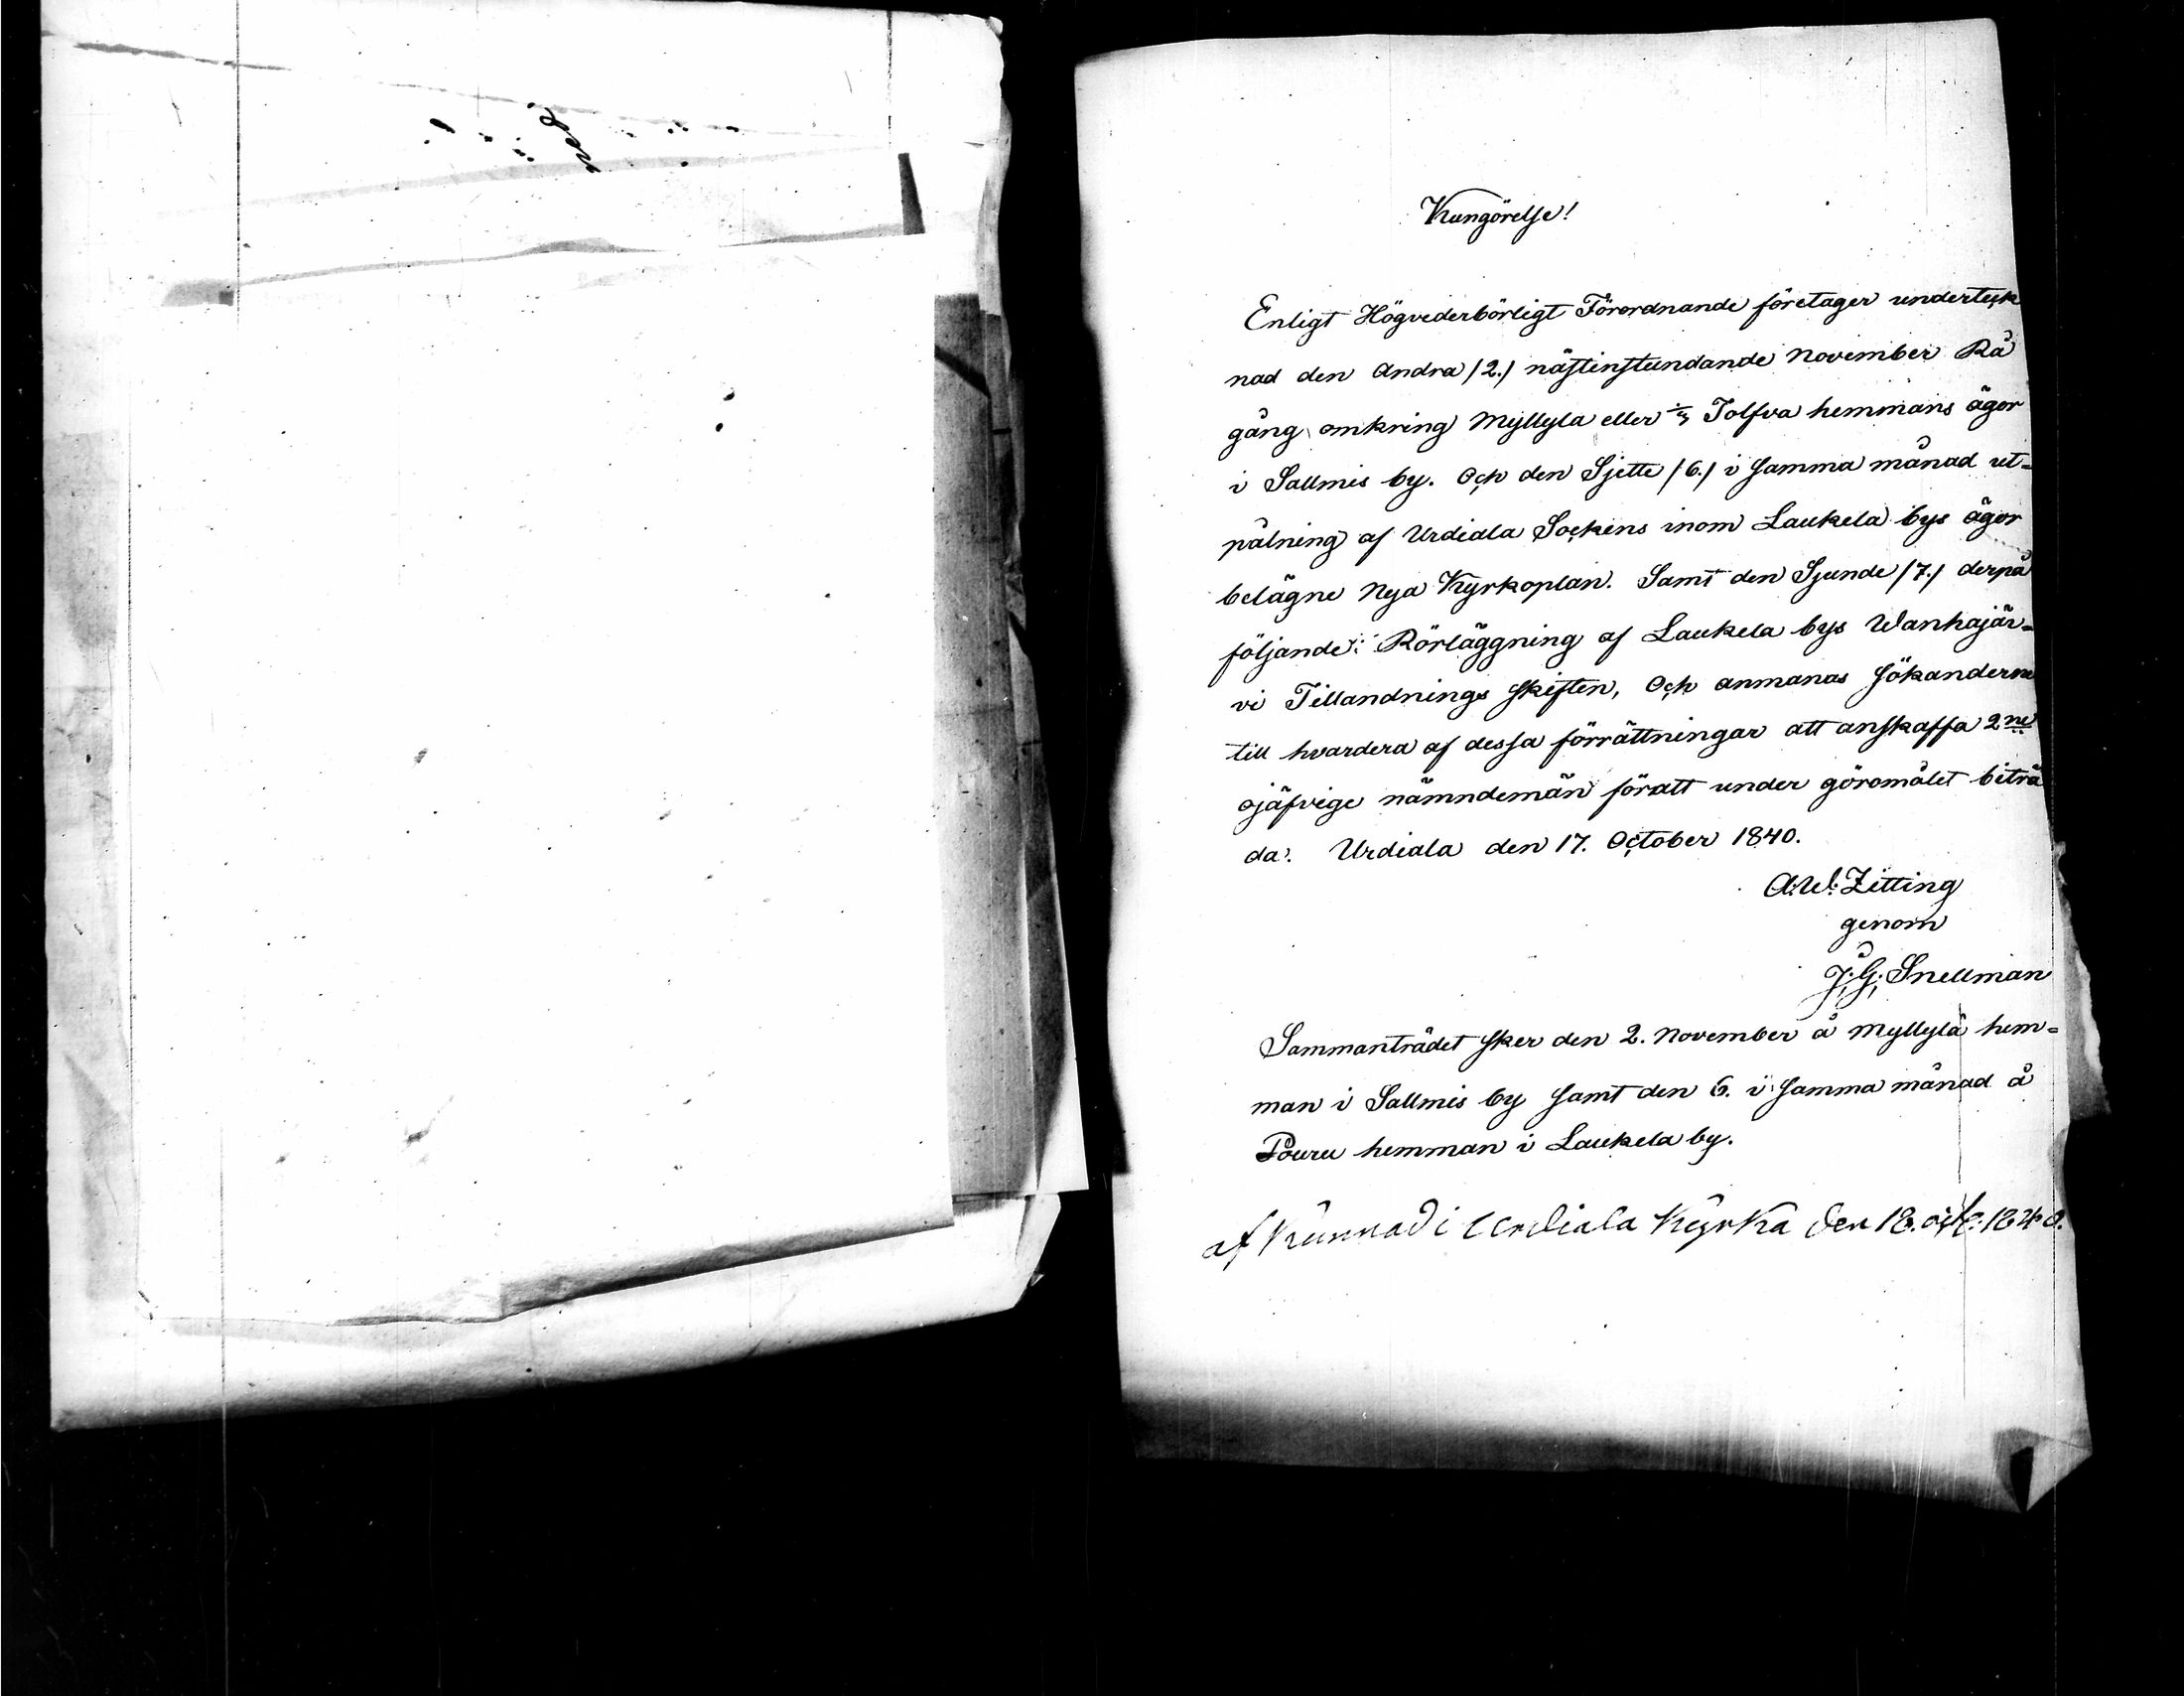 Kungörelse!
Enligt Högvederbörligt Förordnande företager underteck
nad den Andra /2./ nästinstundande November Rå
gång omkring Myllyla eller Tolfva hemmans ägor
i Sallmis by. Och den Sjette /6./ i samma månad ut=
pålning af Urdiala Sockens inom Laukela bys ägor
belägne Nya Kyrkoplan. Samt den Sjunde /7./ derpå
följande: Rörläggning af Laukela bys Wanhajär=
vi Tillandnings skiften, Och anmanas sökanderne
till hvardera af dessa förrättningar att anskaffa 2ne
ojäfvige nämndemän föratt under göromålet biträ
da. Urdiala den 17. October 1840.
A:W: Zitting
genom
J:G: Snellman
Sammanträdet sker den 2. November å Myllylä hem=
man i Sallmis by samt den 6. i samma månad å
Pouru hemman i Laukela by.
af kunnad i Urdiala Kyrka den 18. oct: 1840.